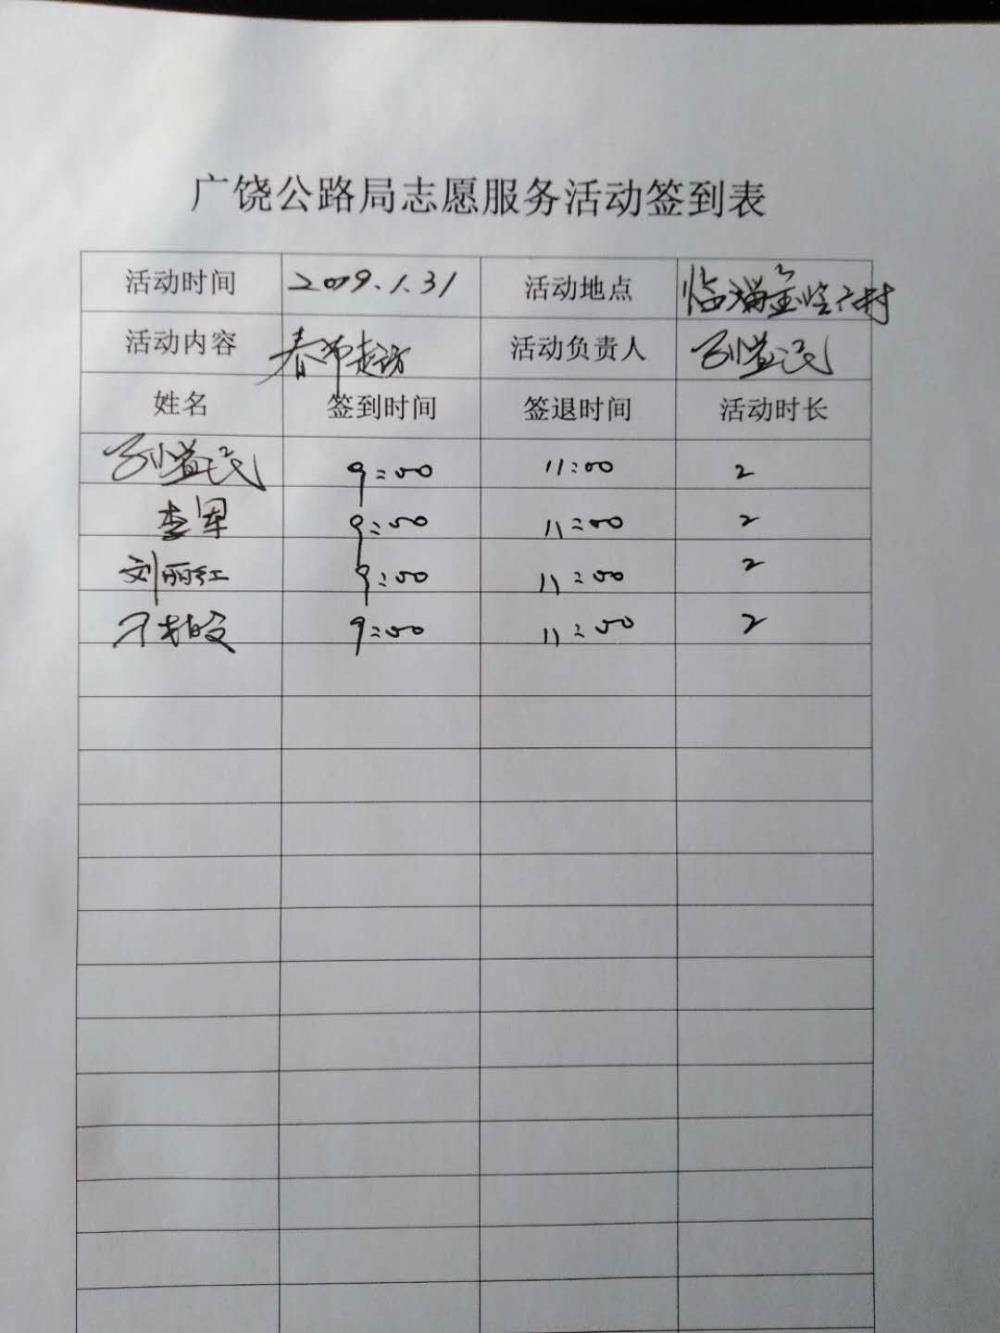 广饶公路局志愿服务活动签到表
活动时间 2019.1.31 活动地点
活动内容 春节走访 活动负责人 孙益民
姓名 签到时间 签退时间 活动时长
孙益民 9:00 11:00 2
李军 9:00 11:00 2
刘丽红 9:00 11:00 2
9:00 11:00 2